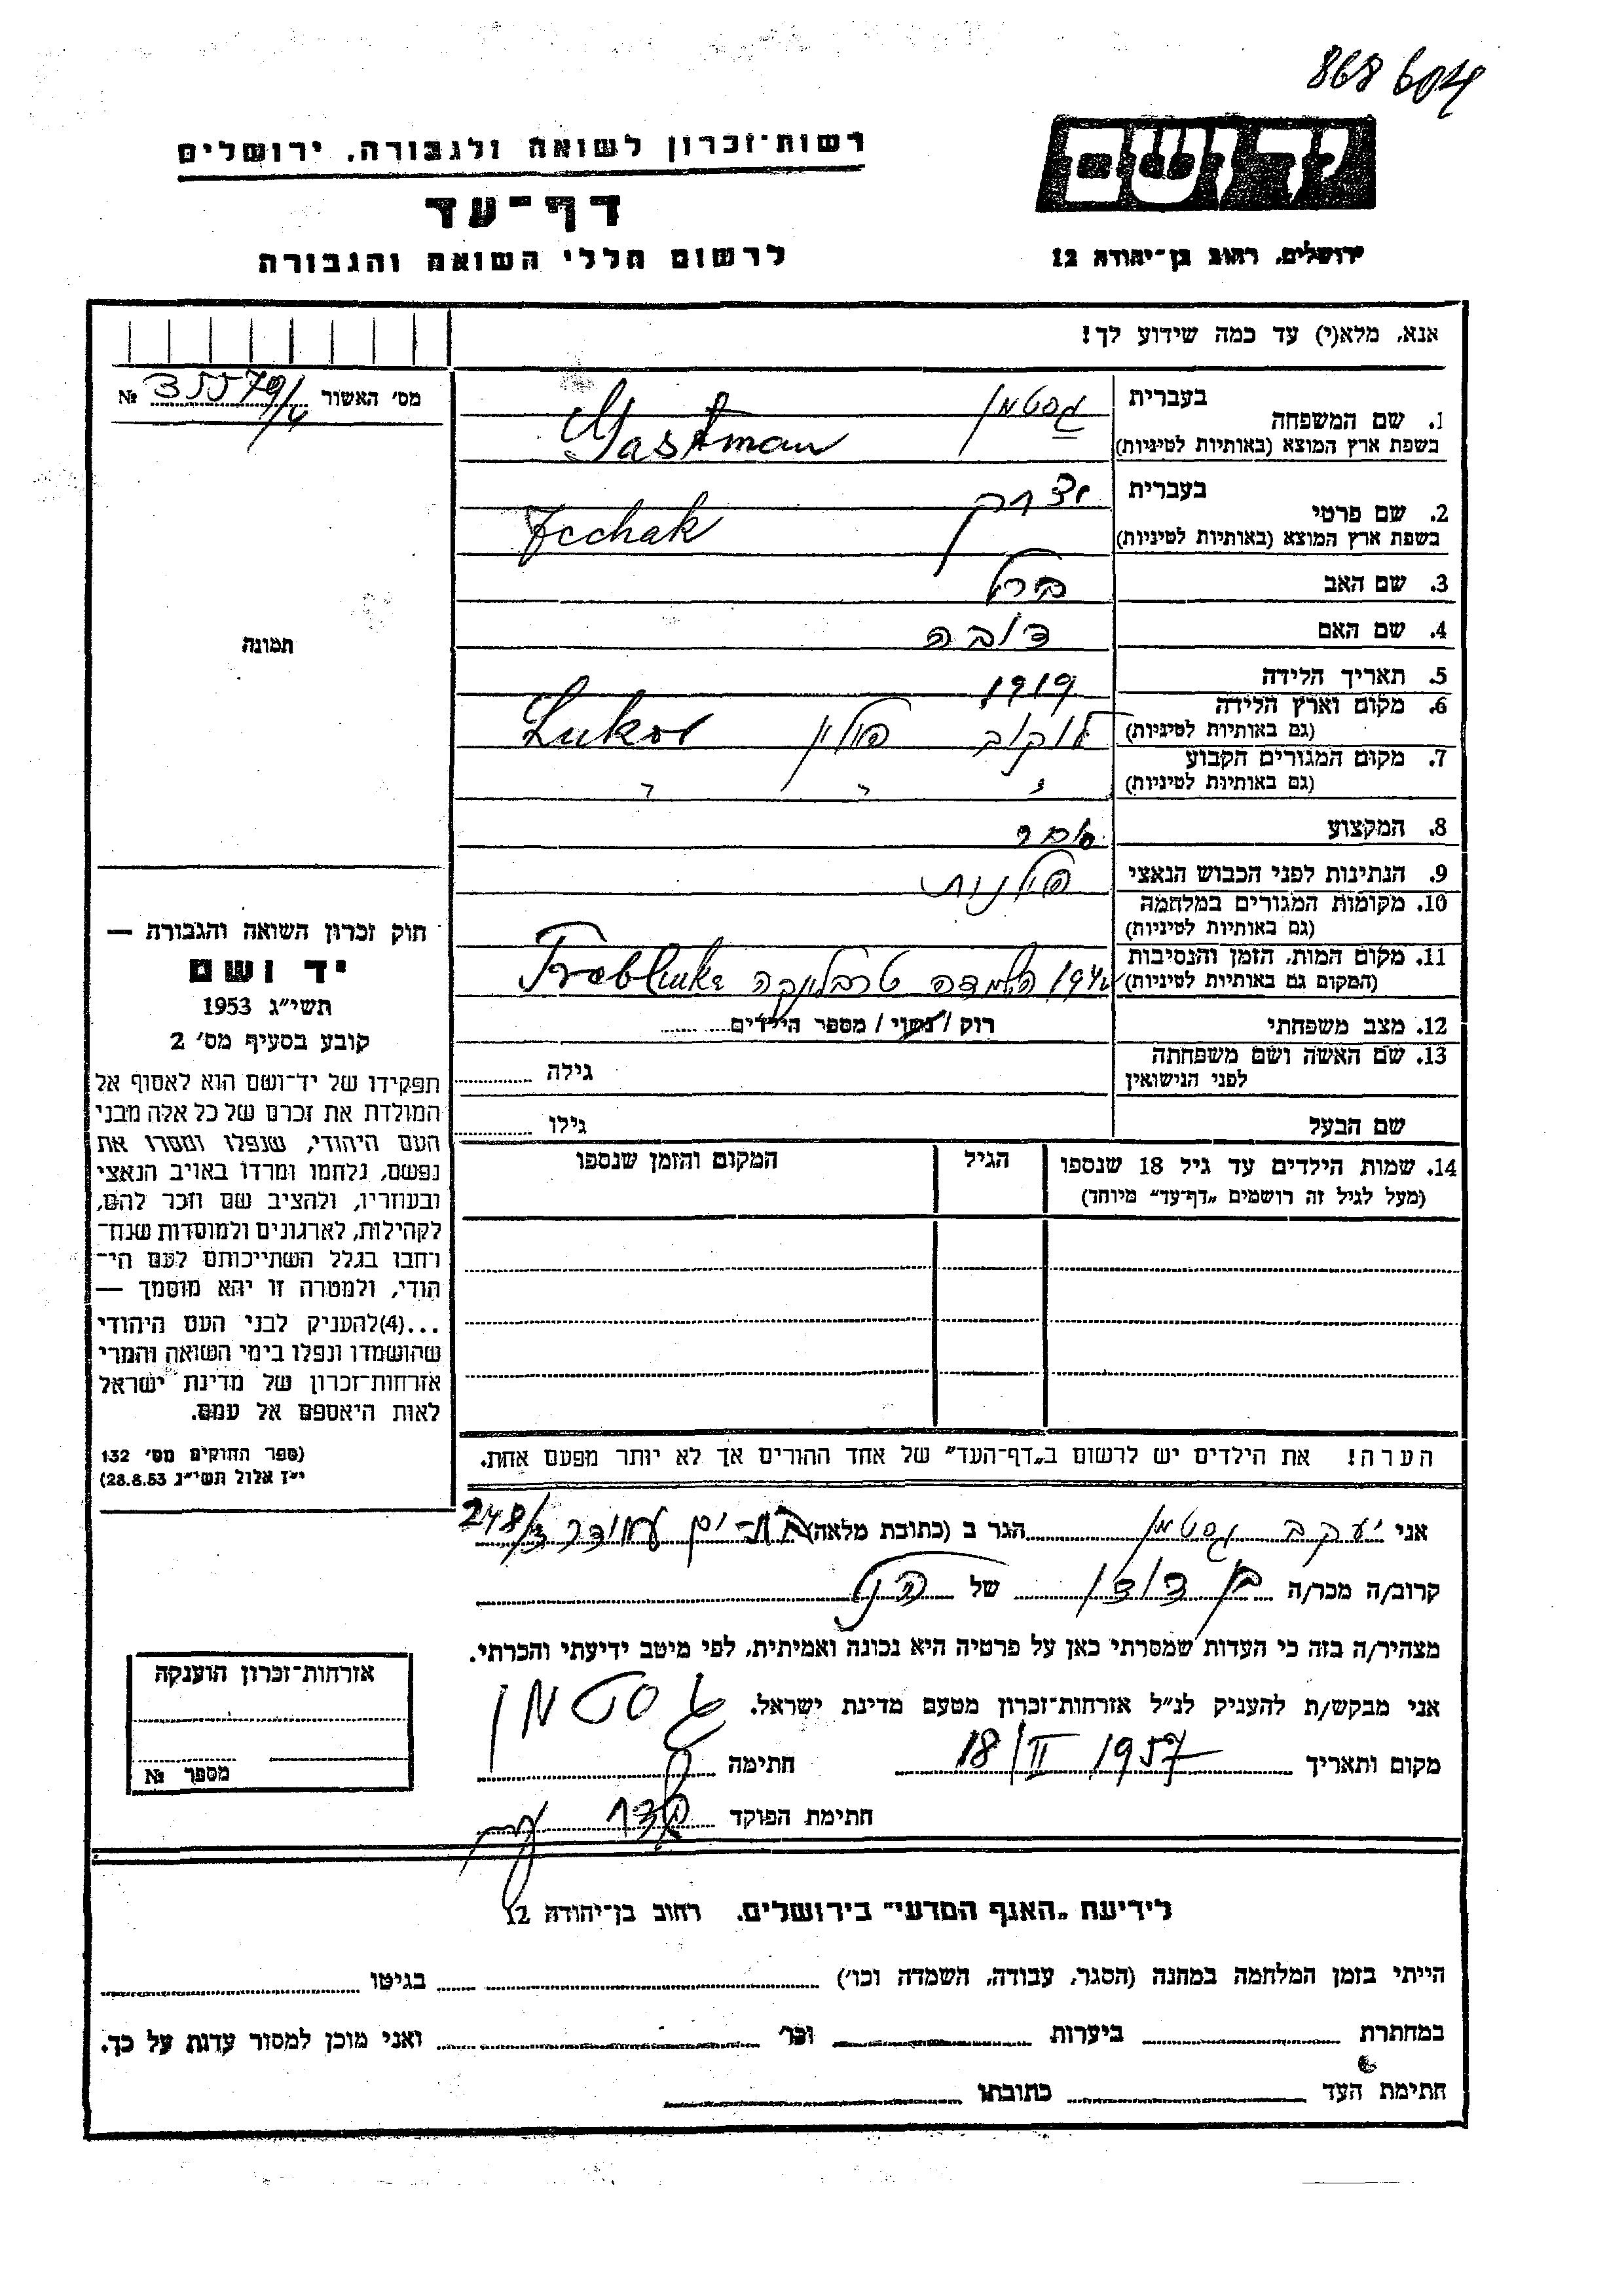 868 604
יד ושם
ירושלים, רחוב בן־יהודה 12
רשות־זכרון לשואה ולגבורה, ירושלים
דף־עד
לרשום חללי השואה והגבורה
אנא, מלא(י) עד כמה שידוע לך!
מס' האשור №
1. שם המשפחה
בעברית גסטמן
בשפת ארץ המוצא (באותיות לטיניות) Gastman
2. שם פרטי
בעברית יצחק
בשפת ארץ המוצא (באותיות לטיניות) Icchak
3. שם האב ברל
4. שם האם דובה
5. תאריך הלידה 1919
6. מקום וארץ הלידה לוקוב פולין
(גם באותיות לטיניות) Lukow
7. מקום המגורים הקבוע
(גם באותיות לטיניות) " " "
8. המקצוע סוחר
9. הנתינות לפני הכבוש הנאצי פולנית
10. מקומות המגורים במלחמה
(גם באותיות לטיניות)
11. מקום המות, הזמן והנסיבות
(המקום גם באותיות לטיניות) 1942 השמדה טרבלינקה Treblinke
12. מצב משפחתי רוק / נשוי / מספר הילדים
13. שם האשה ושם משפחתה
לפני הנישואין גילה
שם הבעל גילו
14. שמות הילדים עד גיל 18 שנספו הגיל המקום והזמן שנספו
(מעל לגיל זה רושמים „דף־עד" מיוחד)
הערה! את הילדים יש לרשום ב„דף־העד" של אחד ההורים אך לא יותר מפעם אחת.
תמונה
חוק זכרון השואה והגבורה —
יד ושם
תשי"ג 1953
קובע בסעיף מס' 2
תפקידו של יד־ושם הוא לאסוף אל
המולדת את זכרם של כל אלה מבני
העם היהודי, שנפלו ומסרו את
נפשם, נלחמו ומרדו באויב הנאצי
ובעוזריו, ולהציב שם וזכר להם,
לקהילות, לארגונים ולמוסדות שנח־
רחבו בגלל השתייכותם לעם הי־
הודי, ולמטרה זו יהא מוסמך —
...(4)להעניק לבני העם היהודי
שהושמדו ונפלו בימי השואה והמרי
אזרחות־זכרון של מדינת ישראל
לאות היאספם אל עמם.
(ספר החוקים מס' 132
י"ז אלול תשי"ג 28.8.53)
אני יעקב גסטמן הגר ב (כתובת מלאה) בת־ים עמידר 248/3
קרוב/ה מכר/ה בן דודו של הנ"ל
מצהיר/ה בזה כי העדות שמסרתי כאן על פרטיה היא נכונה ואמיתית, לפי מיטב ידיעתי והכרתי.
אני מבקש/ת להעניק לנ"ל אזרחות־זכרון מטעם מדינת ישראל.
מקום ותאריך 18/II 1957 חתימה גסטמן
חתימת הפוקד
אזרחות־זכרון הוענקה
מספר №
לידיעת „האגף המדעי" בירושלים, רחוב בן־יהודה 12
הייתי בזמן המלחמה במחנה (הסגר, עבודה, השמדה וכו') בגיטו
במחתרת ביערות וכו' ואני מוכן למסור עדות על כך.
חתימת העד כתובתו